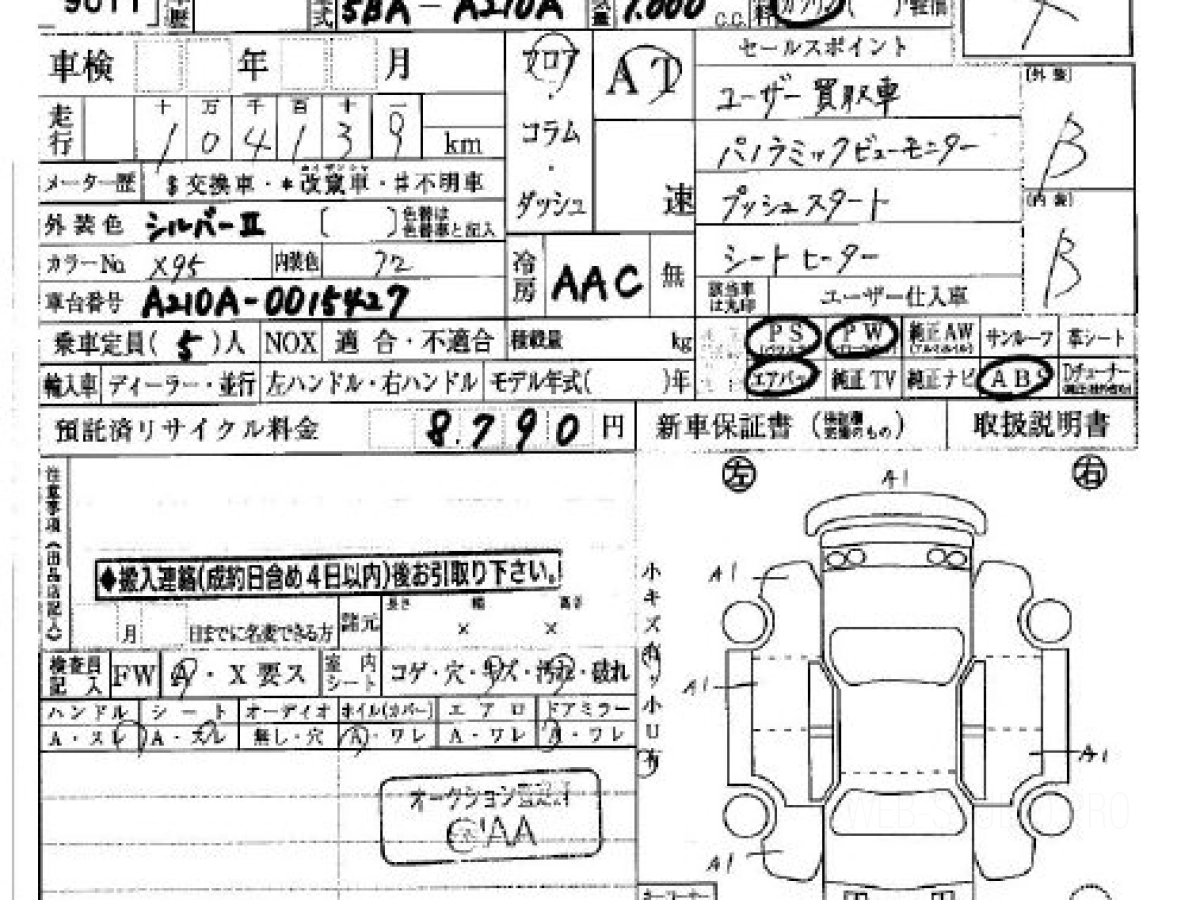 9011 歴 式 5BA-A210A 量 1.000 c.c. 料 ガソリン( )軽油
車検 年 月 フロア AT セールスポイント
・ ユーザー買取車 (外装)
走行 十 万 千 百 十 一
1 0 4 1 3 9 km コラム パノラミックビューモニター B
・
メーター歴 $交換車・*改竄車・#不明車 ダッシュ 速 プッシュスタート (内装)
外装色 シルバーII ( )色替は色替車と記入
カラーNo. X95 内装色 72 冷房 AAC 無 シートヒーター B
車台番号 A210A-0015427 該当車は丸印 ユーザー仕入車
乗車定員(5)人 NOX 適合・不適合 積載量 kg PS PW 純正AW サンルーフ 革シート
輸入車 ディーラー・並行 左ハンドル・右ハンドル モデル年式( )年 エアバッグ 純正TV 純正ナビ ABS Dチューナー
預託済リサイクル料金 8.790 円 新車保証書 取扱説明書
注意事項(出品店記入) 左 A1 右
◆搬入連絡(成約日含め4日以内)後お引取り下さい。
小キズ有り小U有 A1
月 日までに名変できる方 諸元 長さ × 幅 × 高さ
検査員記入 FW A・X要ス 室内シート コゲ・穴・キズ・汚れ・破れ
A1
ハンドル シート オーディオ ホイル(カバー) エアロ ドアミラー
A・スレ A・スレ 無し・穴 A・ワレ A・ワレ A・ワレ
A1
オークション
CAA
A1